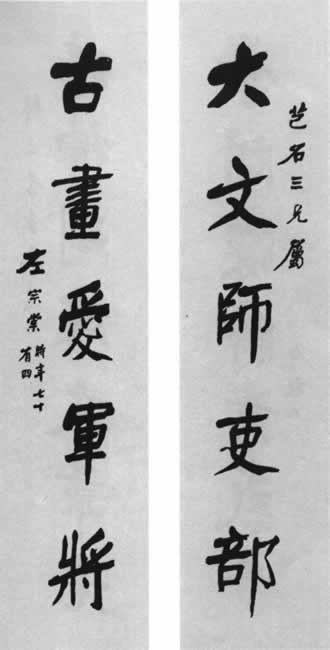 石三兄屬
大文師吏部
古畫愛軍將
左宗棠
時年七十
有四